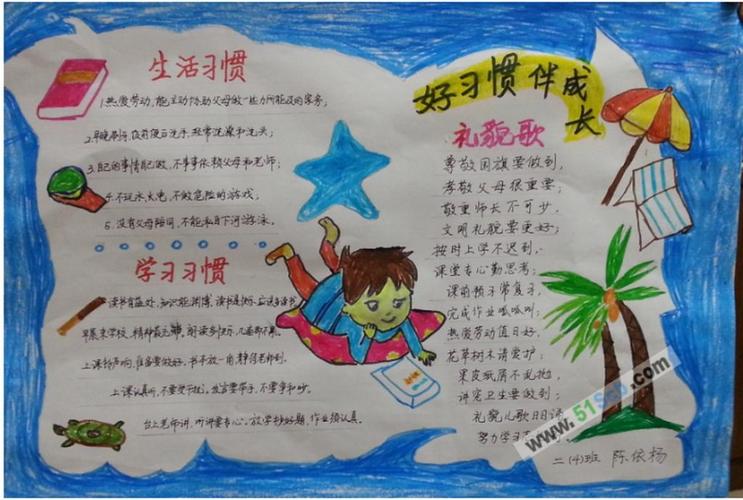 生活习惯
1.热爱劳动,能主动协助父母做一些力所能及的家务;
2.早晚刷牙,饭前便后洗手,经常洗澡和洗头;
3.自己的事情自己做,不事事依赖父母和老师;
4.不玩水火电,不做危险的游戏;
5.没有父母陪同,不能私自下河游泳。
学习习惯
读书有益处,知识能渊博,读书是快乐,应该多读书
早晨来学校,精神最元
上课铃声响,准备要做好,书本放一角,静待老师到。
上课认真听,不要受干扰,发言要举手,不要争和吵。
台上老师讲,听讲要专心。放学抄好题,作业须认真。
好习惯伴成长
礼貌歌
尊敬国旗要做到,
孝敬父母很重要;
敬重师长不可少,
文明礼貌要更好;
按时上学不迟到,
课堂专心勤思考;
课前预习常复习,
完成作业呱呱叫;
热爱劳动值日好,
花草树木请爱护;
果皮纸屑不乱抛,
讲究卫生要做到;
礼貌儿歌日日诵
努力学习
www.515
.com
二(4)班 陈依杨